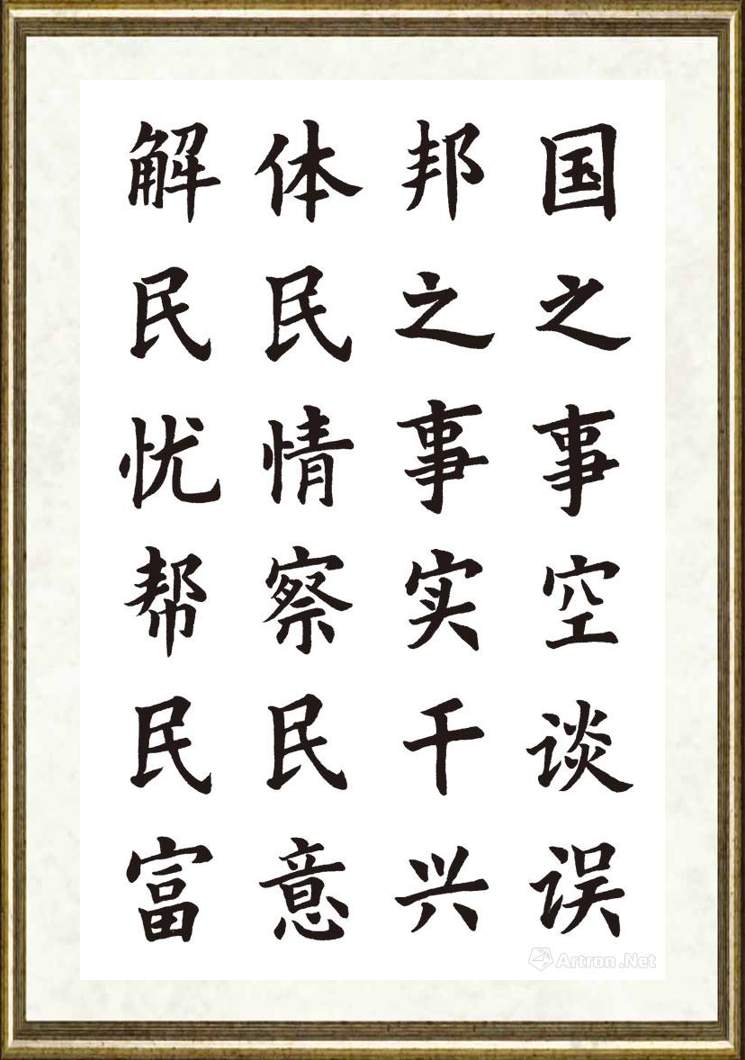 国之事空谈误
邦之事实干兴
体民情察民意
解民忧帮民富
Artron.Net